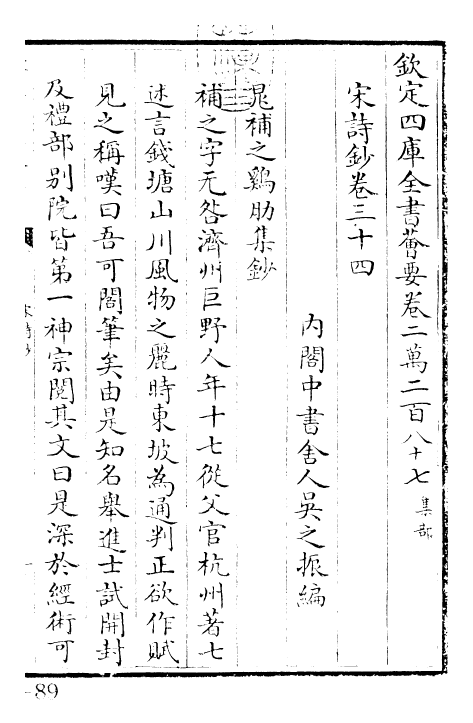 欽定四庫全書薈要卷二萬二百八十七 集部
宋詩鈔卷三十四
內閣中書舍人吳之振編
晁補之鷄肋集鈔
補之字无咎濟州巨野人年十七從父官杭州著七
述言錢塘山川風物之麗時東坡為通判正欲作賦
見之稱嘆曰吾可閣筆矣由是知名舉進士試開封
及禮部別院皆第一神宗閱其文曰是深於經術可
-89